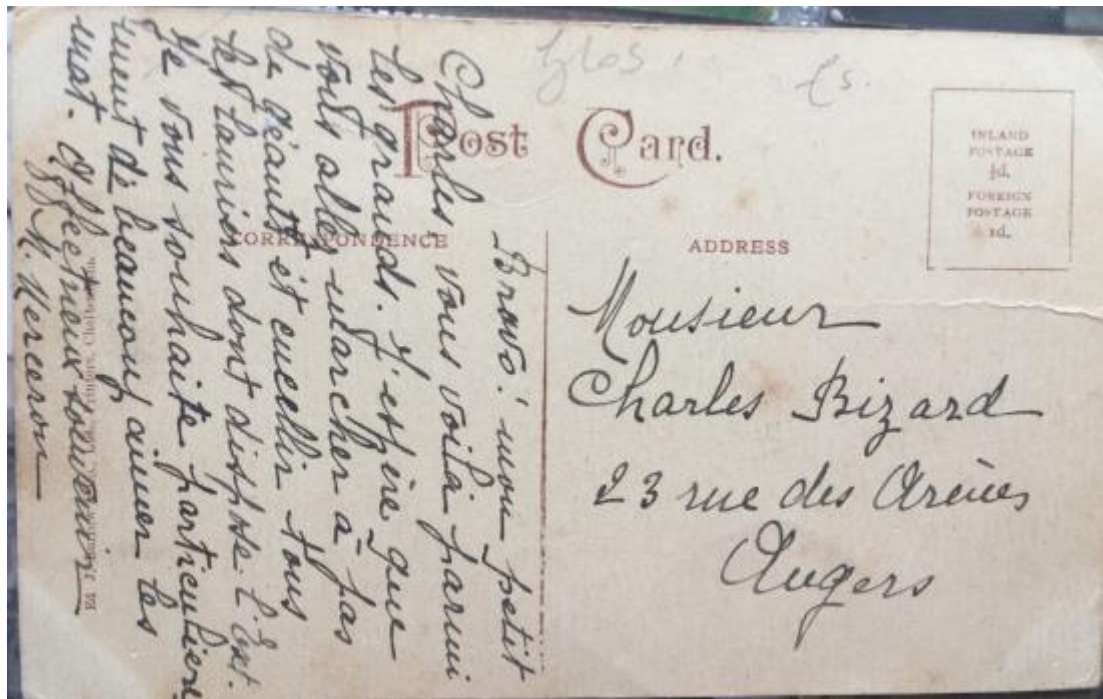 Glos.
Post Card.
INLAND
POSTAGE
½d.
FOREIGN
POSTAGE
1d.
CORRESPONDENCE
ADDRESS
Bravo! mon petit
Charles, vous voilà parmi
les grands. J'espère que
vous allez marcher à pas
de géants et cueillir tous
les lauriers dont dispose l'Ext.
Je vous souhaite particulière
ment de beaucoup aimer les
mat. Affectueux souvenir
M. Merceron
Monsieur
Charles Bizard
23 rue des Arènes
Angers